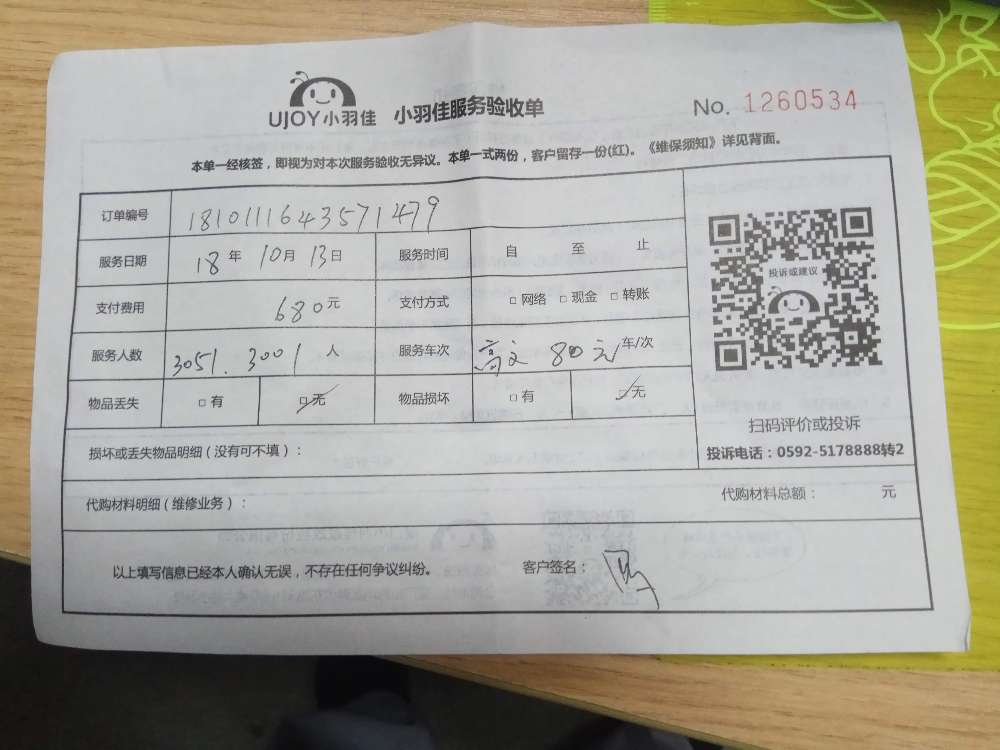 UJOY小羽佳 小羽佳服务验收单 No. 1260534
本单一经核签，即视为对本次服务验收无异议。本单一式两份，客户留存一份(红)。《维保须知》详见背面。
订单编号 1810111643571479
服务日期 18年10月13日 服务时间 自 至 止
支付费用 680元 支付方式 □网络 □现金 □转账
服务人数 3051.3001人 服务车次 80元车/次
物品丢失 □有 □无 物品损坏 □有 □无
投诉或建议
扫码评价或投诉
投诉电话：0592-5178888转2
损坏或丢失物品明细（没有可不填）：
代购材料明细（维修业务）： 代购材料总额： 元
以上填写信息已经本人确认无误，不存在任何争议纠纷。 客户签名：